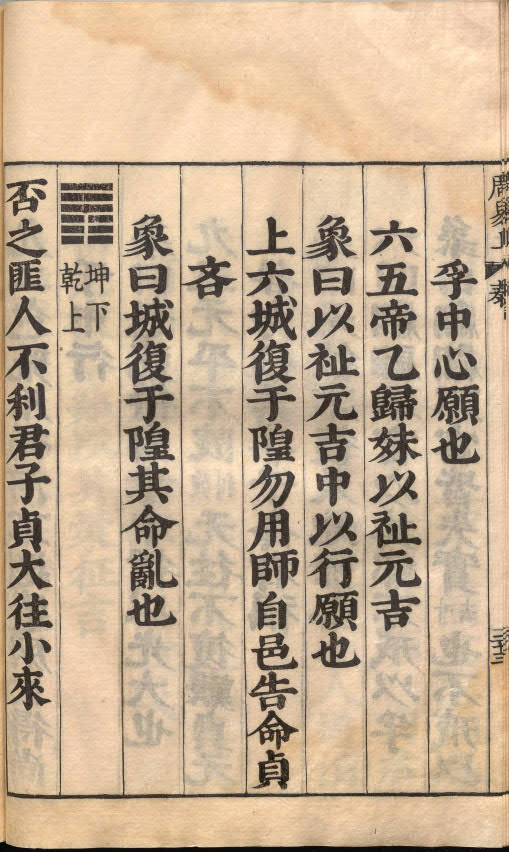 孚中心願也
六五帝乙歸妹以祉元吉
象曰以祉元吉中以行願也
上六城復于隍勿用師自邑告命貞
吝
象曰城復于隍其命亂也
坤下
乾上
否之匪人不利君子貞大往小來